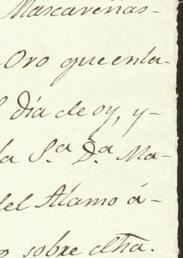 Mascareñas-
Oro que en la-
dia de oy, y-
la S.ª D.ª Ma-
del Alamo á-
sobre dha.